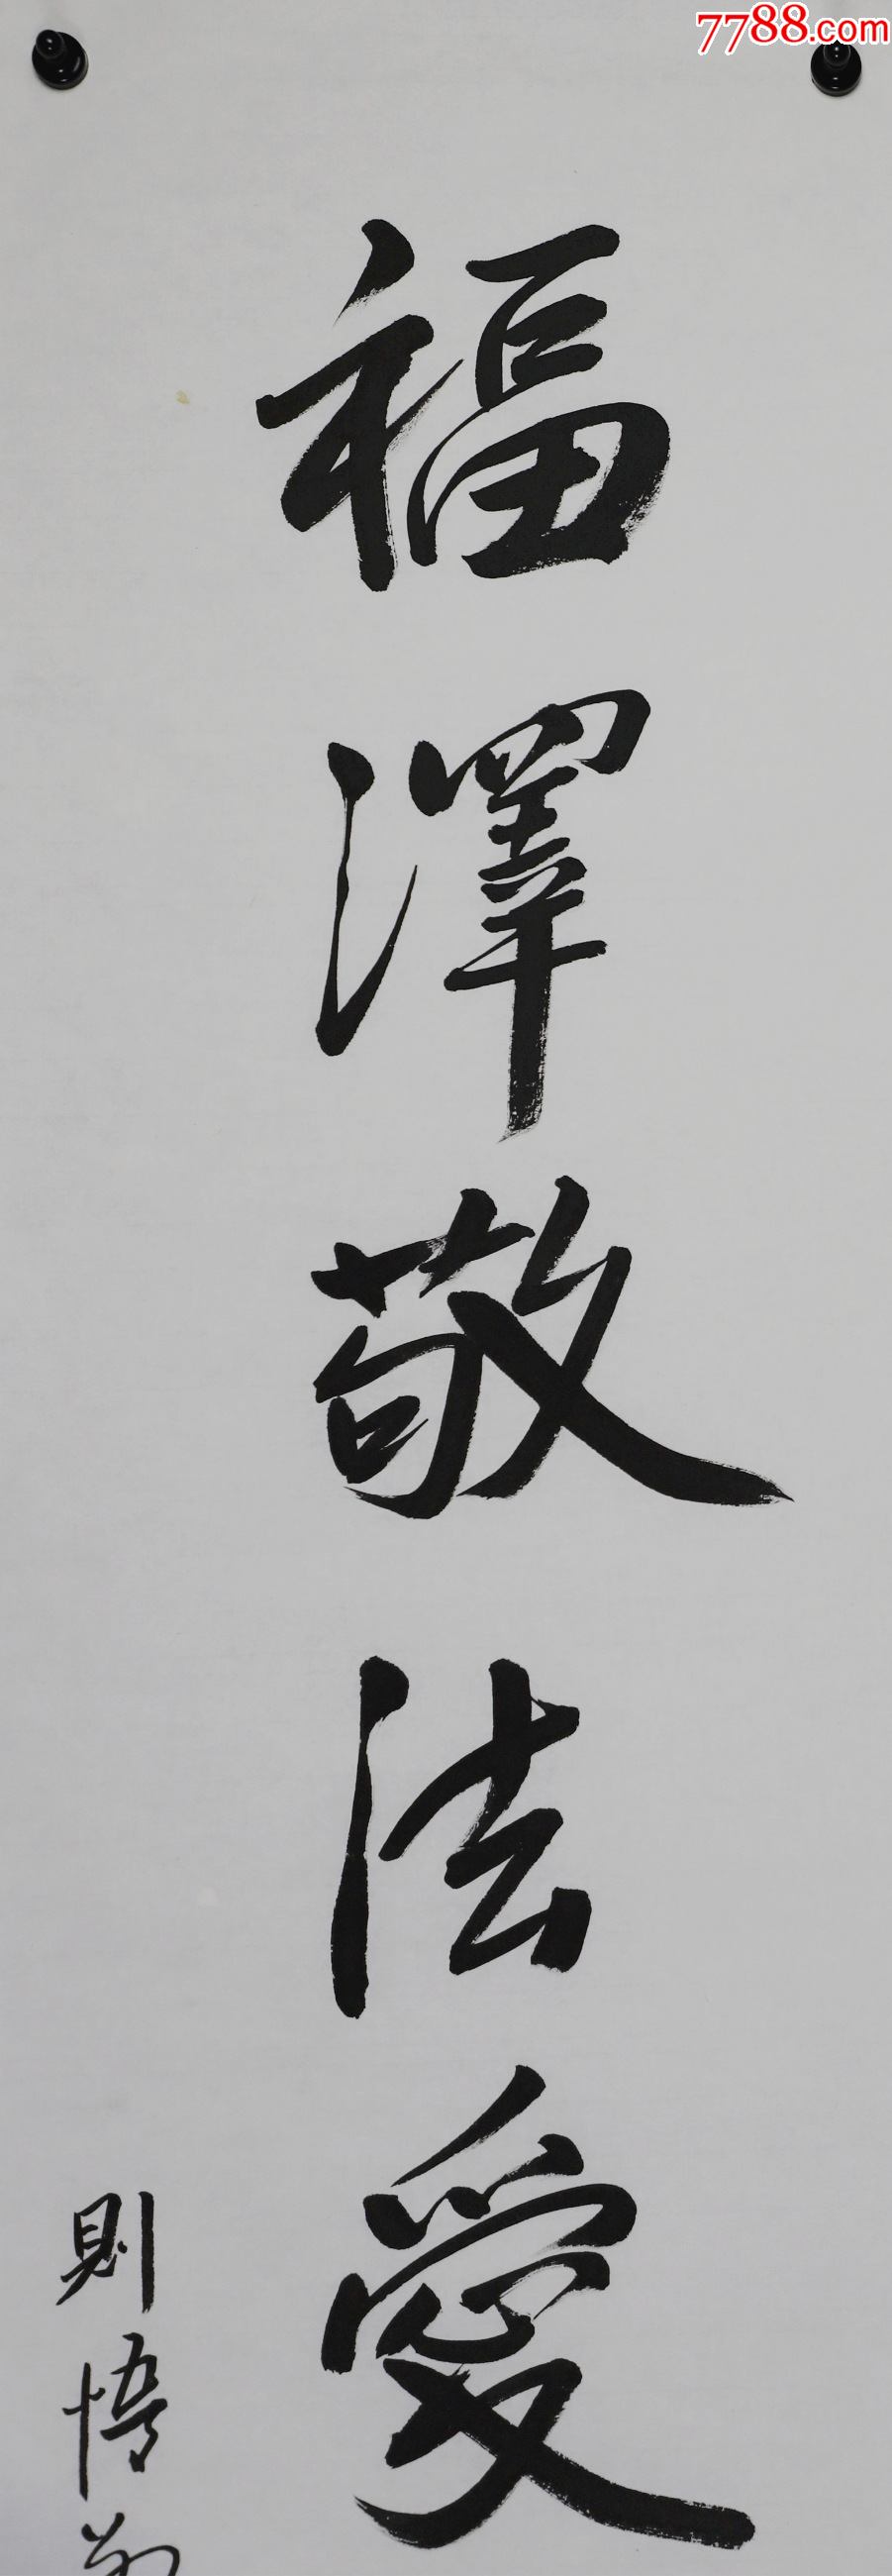 7788.com
福澤敬法愛
則悟